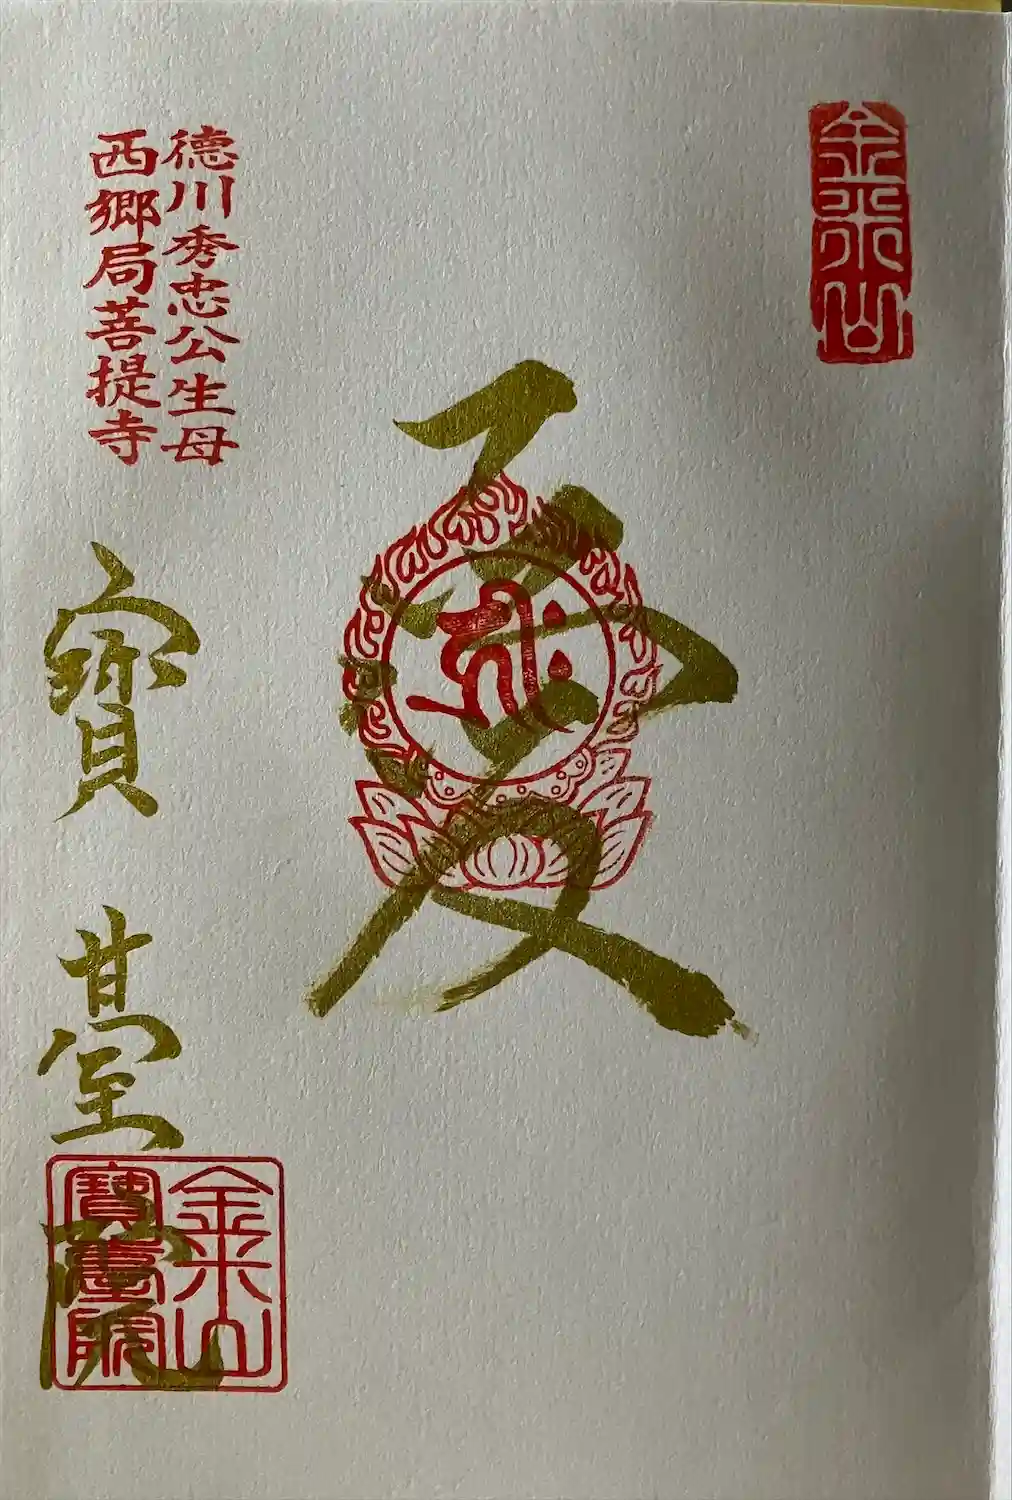 金米山
愛
キリーク
徳川秀忠公生母
西郷局菩提寺
寳臺院
金米山
寳臺院